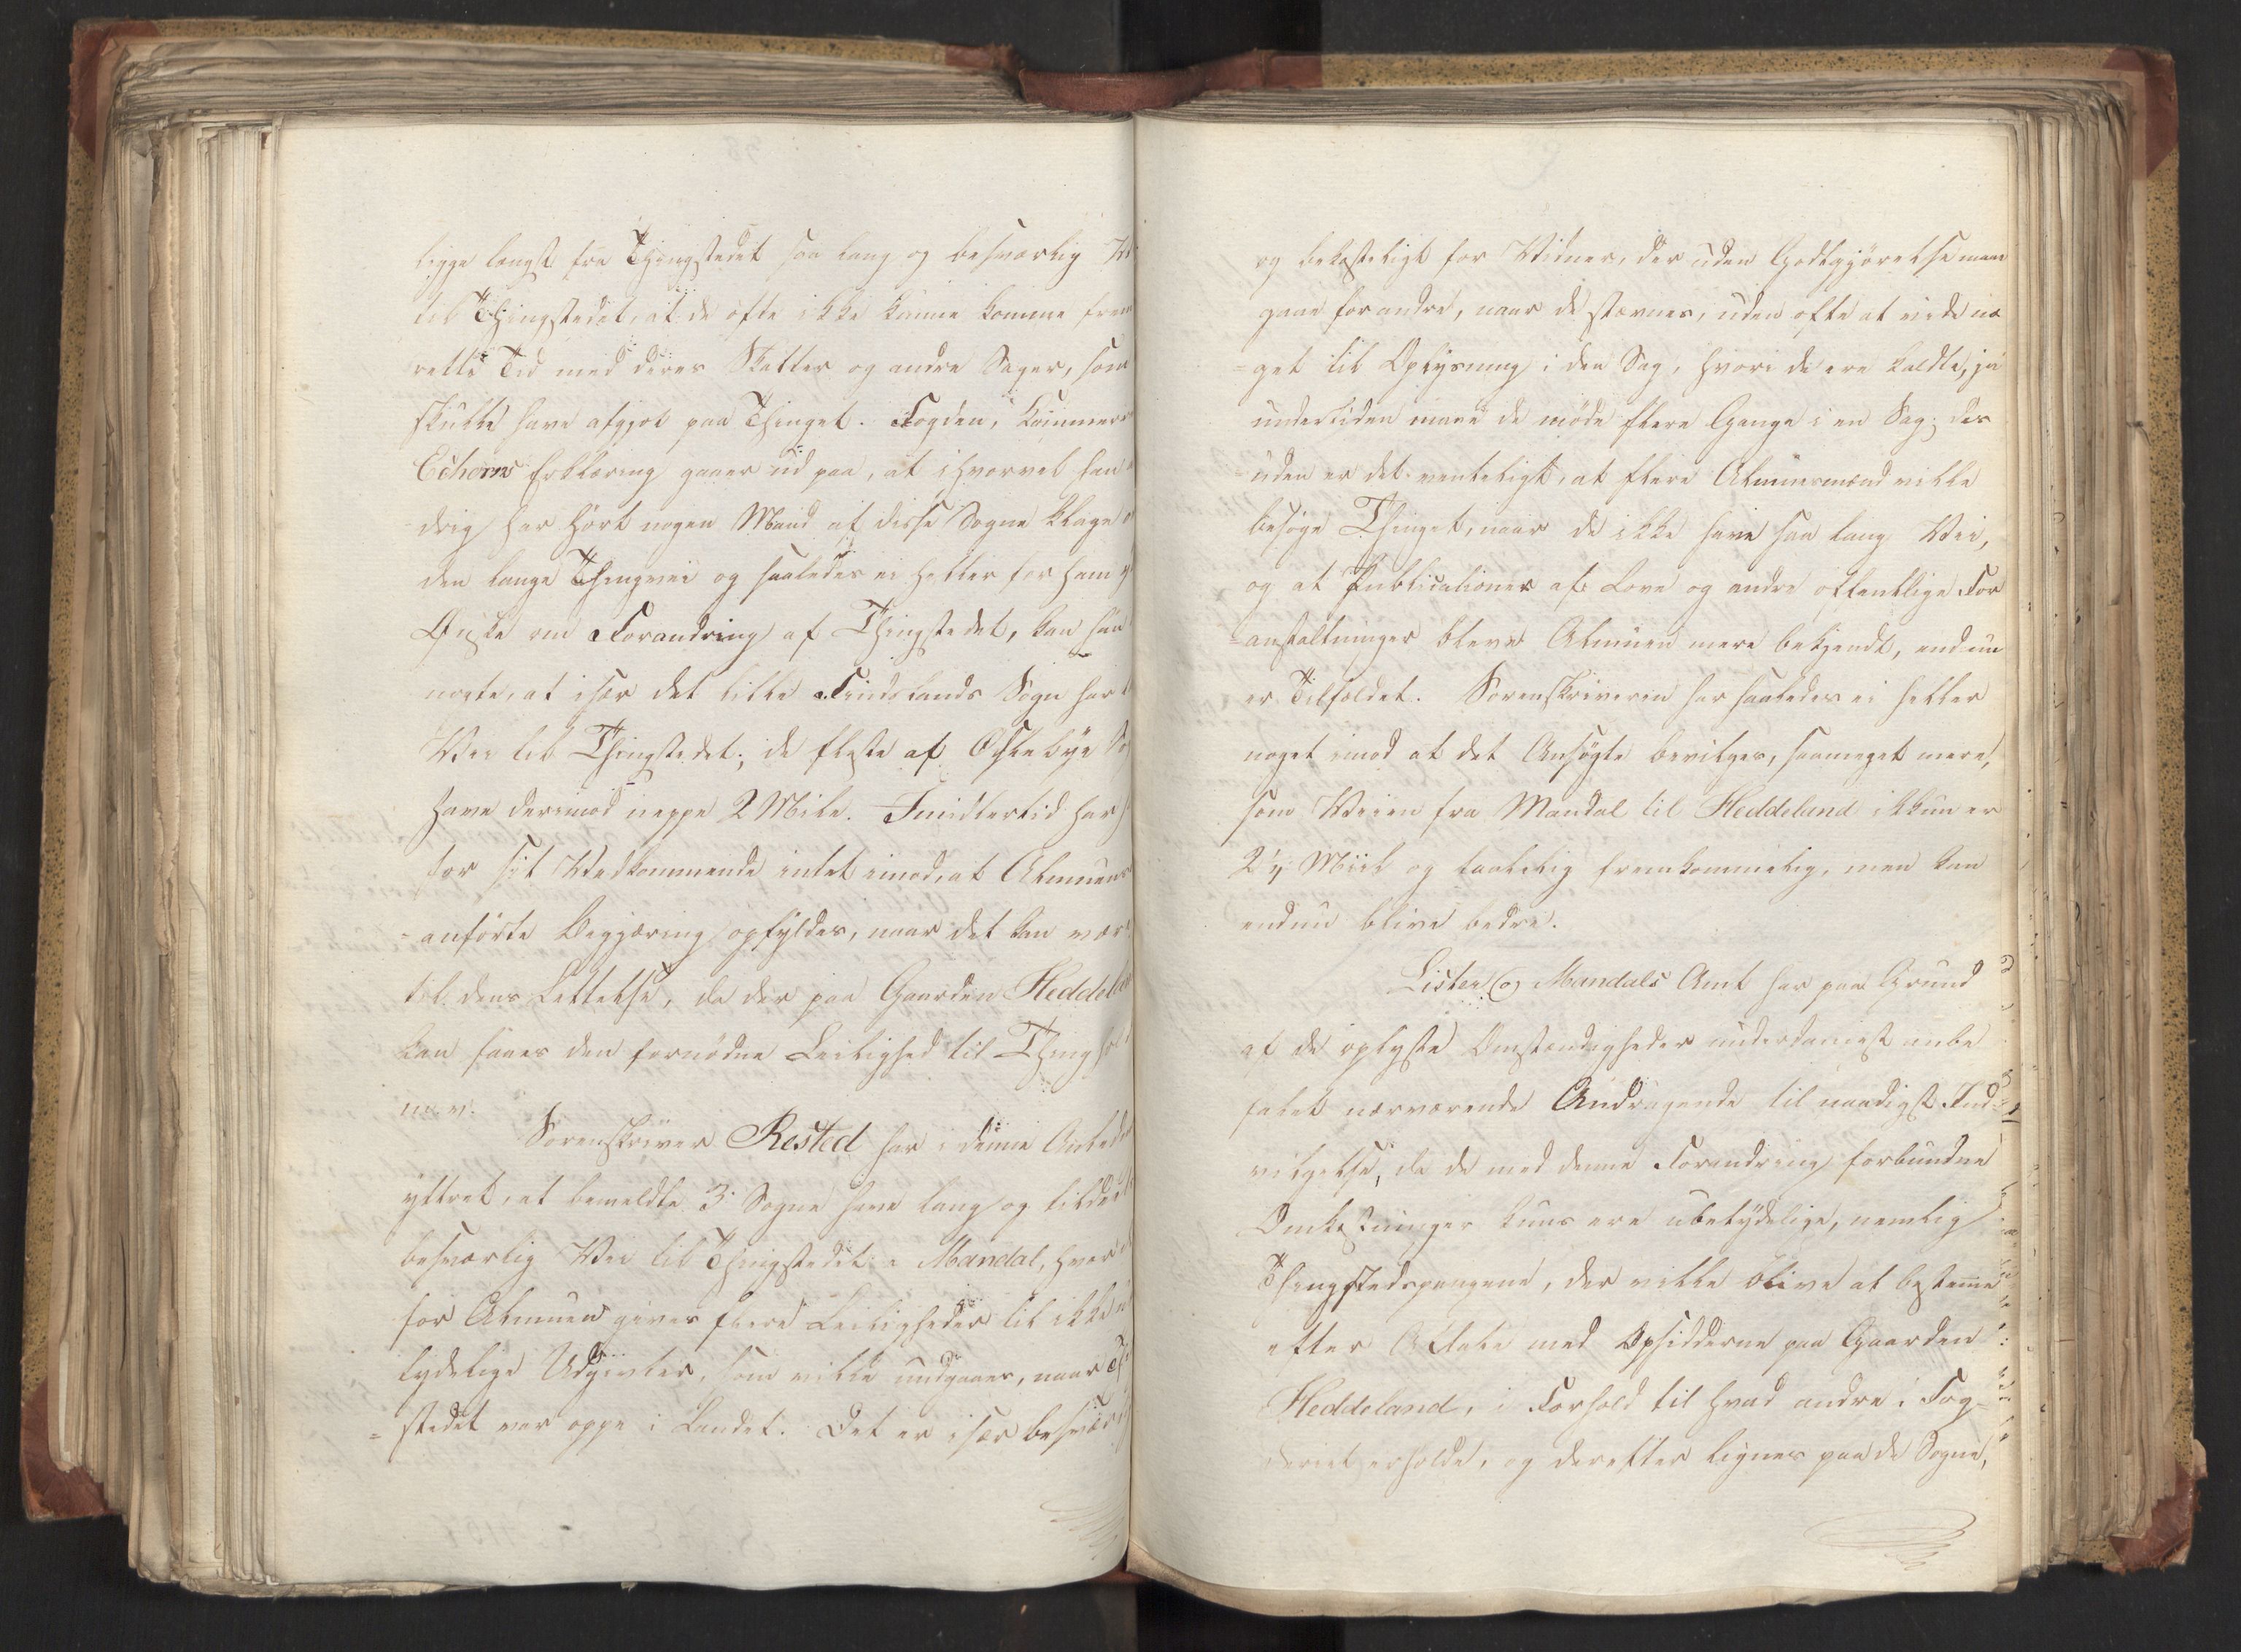 ligge længst fra Thingstedet saa lang og besværlig
til Thingstedet, at de ofte ikke kunne komme frem
rette Tid med deres Skatter og andre Sager, som
skulle have afgjort paa Thinget. Fogden,
Echorns Erklæring gaaer ud paa, at ihvorvel han
drig har hørt nogen Mand af disse Sogne klage
den lange Thingvei og saaledes ei heller for ham
Ønske om Forandring af Thingstedet, kan han
negte, at især det lille Findslands Sogn har
Vei til Thingstedet; de fleste af Øslebye
have derimod neppe 2 Mile. Imidlertid har
for sit Vedkommende intet imod, at Almuens
anførte Begjæring opfyldes, naar det kan være
til dens Lettelse, da der paa Gaarden Heddeland
kan faaes den fornødne Leilighed til Thinghold
m. v.
Sorenskriver Rested har i denne Anledn
yttret, at bemeldte 3 Sogne have lang og tildeels
besværlig Vei til Thingstedet i Mandal, hvor
for Almuen gives flere Leiligheder til ikke
tydelige Udgivter, som ville undgaaes, naar Th
=stedet var oppe i Landet. Det er især besvær
og bekosteligt for Vidner, der uden Godtgjørelse maae
gaae for andre, naar de stævnes, uden ofte at vide no
=get til Oplysning i den Sag, hvori de ere kaldte, ja
undertiden maae de møde flere Gange i en Sag; des
=uden er det venteligt, at flere Almuesmænd ville
besøge Thinget, naar de ikke have saa lang Vei,
og at Publicationer af Love og andre offentlige For
=anstaltninger bleve Almuen mere bekjendt, end nu
er Tilfældet. Sorenskriveren har saaledes ei heller
noget imod at det Ansøgte bevilges, saameget mere,
som Veien fra Mandal til Heddeland ikkun er
2¼ Miil og taalelig fremkommelig, men kan
endnu blive bedre.
Lister og Mandals Amt har paa Grund
af de oplyste Omstændigheder underdanigst anbe
falet nærværende Andragende til naadigst Ind=
vilgelse, da de med denne Forandring forbundne
Omkostninger kuns ere ubetydelige, nemlig
Thingstedspengene, der ville blive at bestemme
efter Aftale med Opsidderne paa Gaarden
Heddeland, i Forhold til hvad andre i Fog=
deriet erholde, og derefter lignes paa de Sogne,